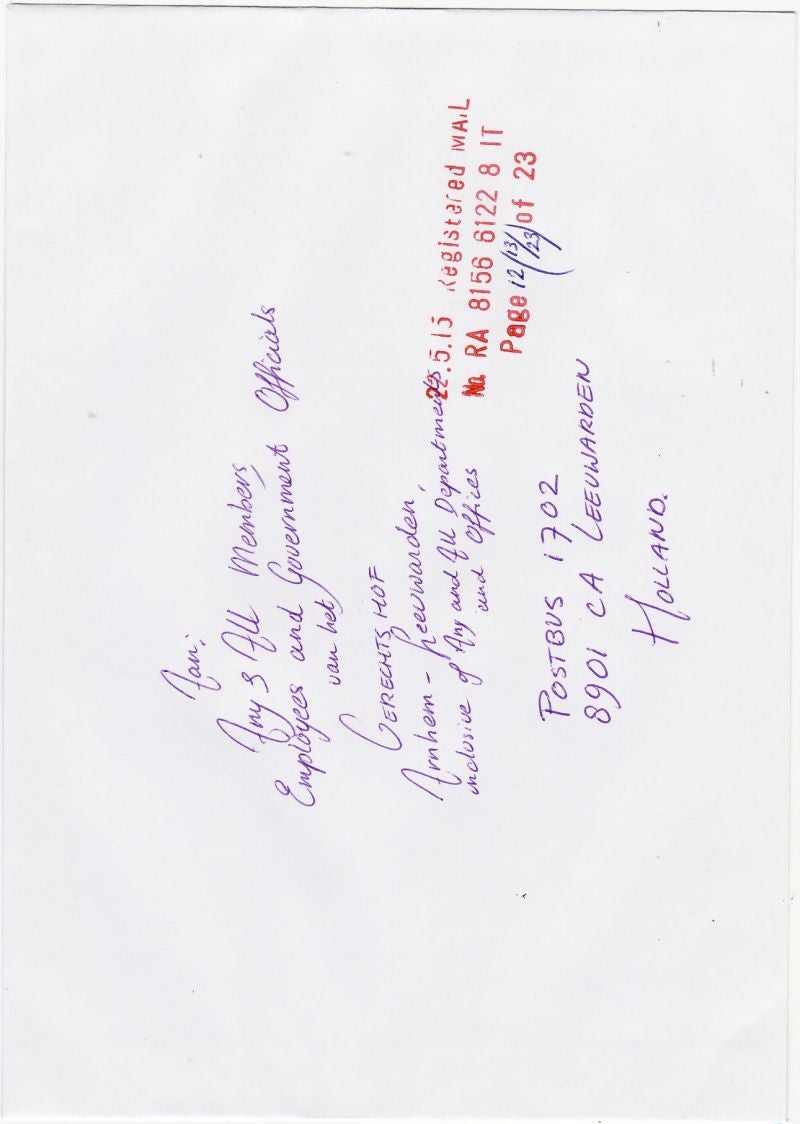 Aan:
Any & All Members,
Employees and Government Officials
van het
GERECHTSHOF
Arnhem - Leeuwarden,
inclusive of Any and All Departments
and Offices
POSTBUS 1702
8901 CA LEEUWARDEN
HOLLAND.
22.5.15 Registered MAIL
No. RA 8156 6122 8 IT
Page 12 (13/23) of 23